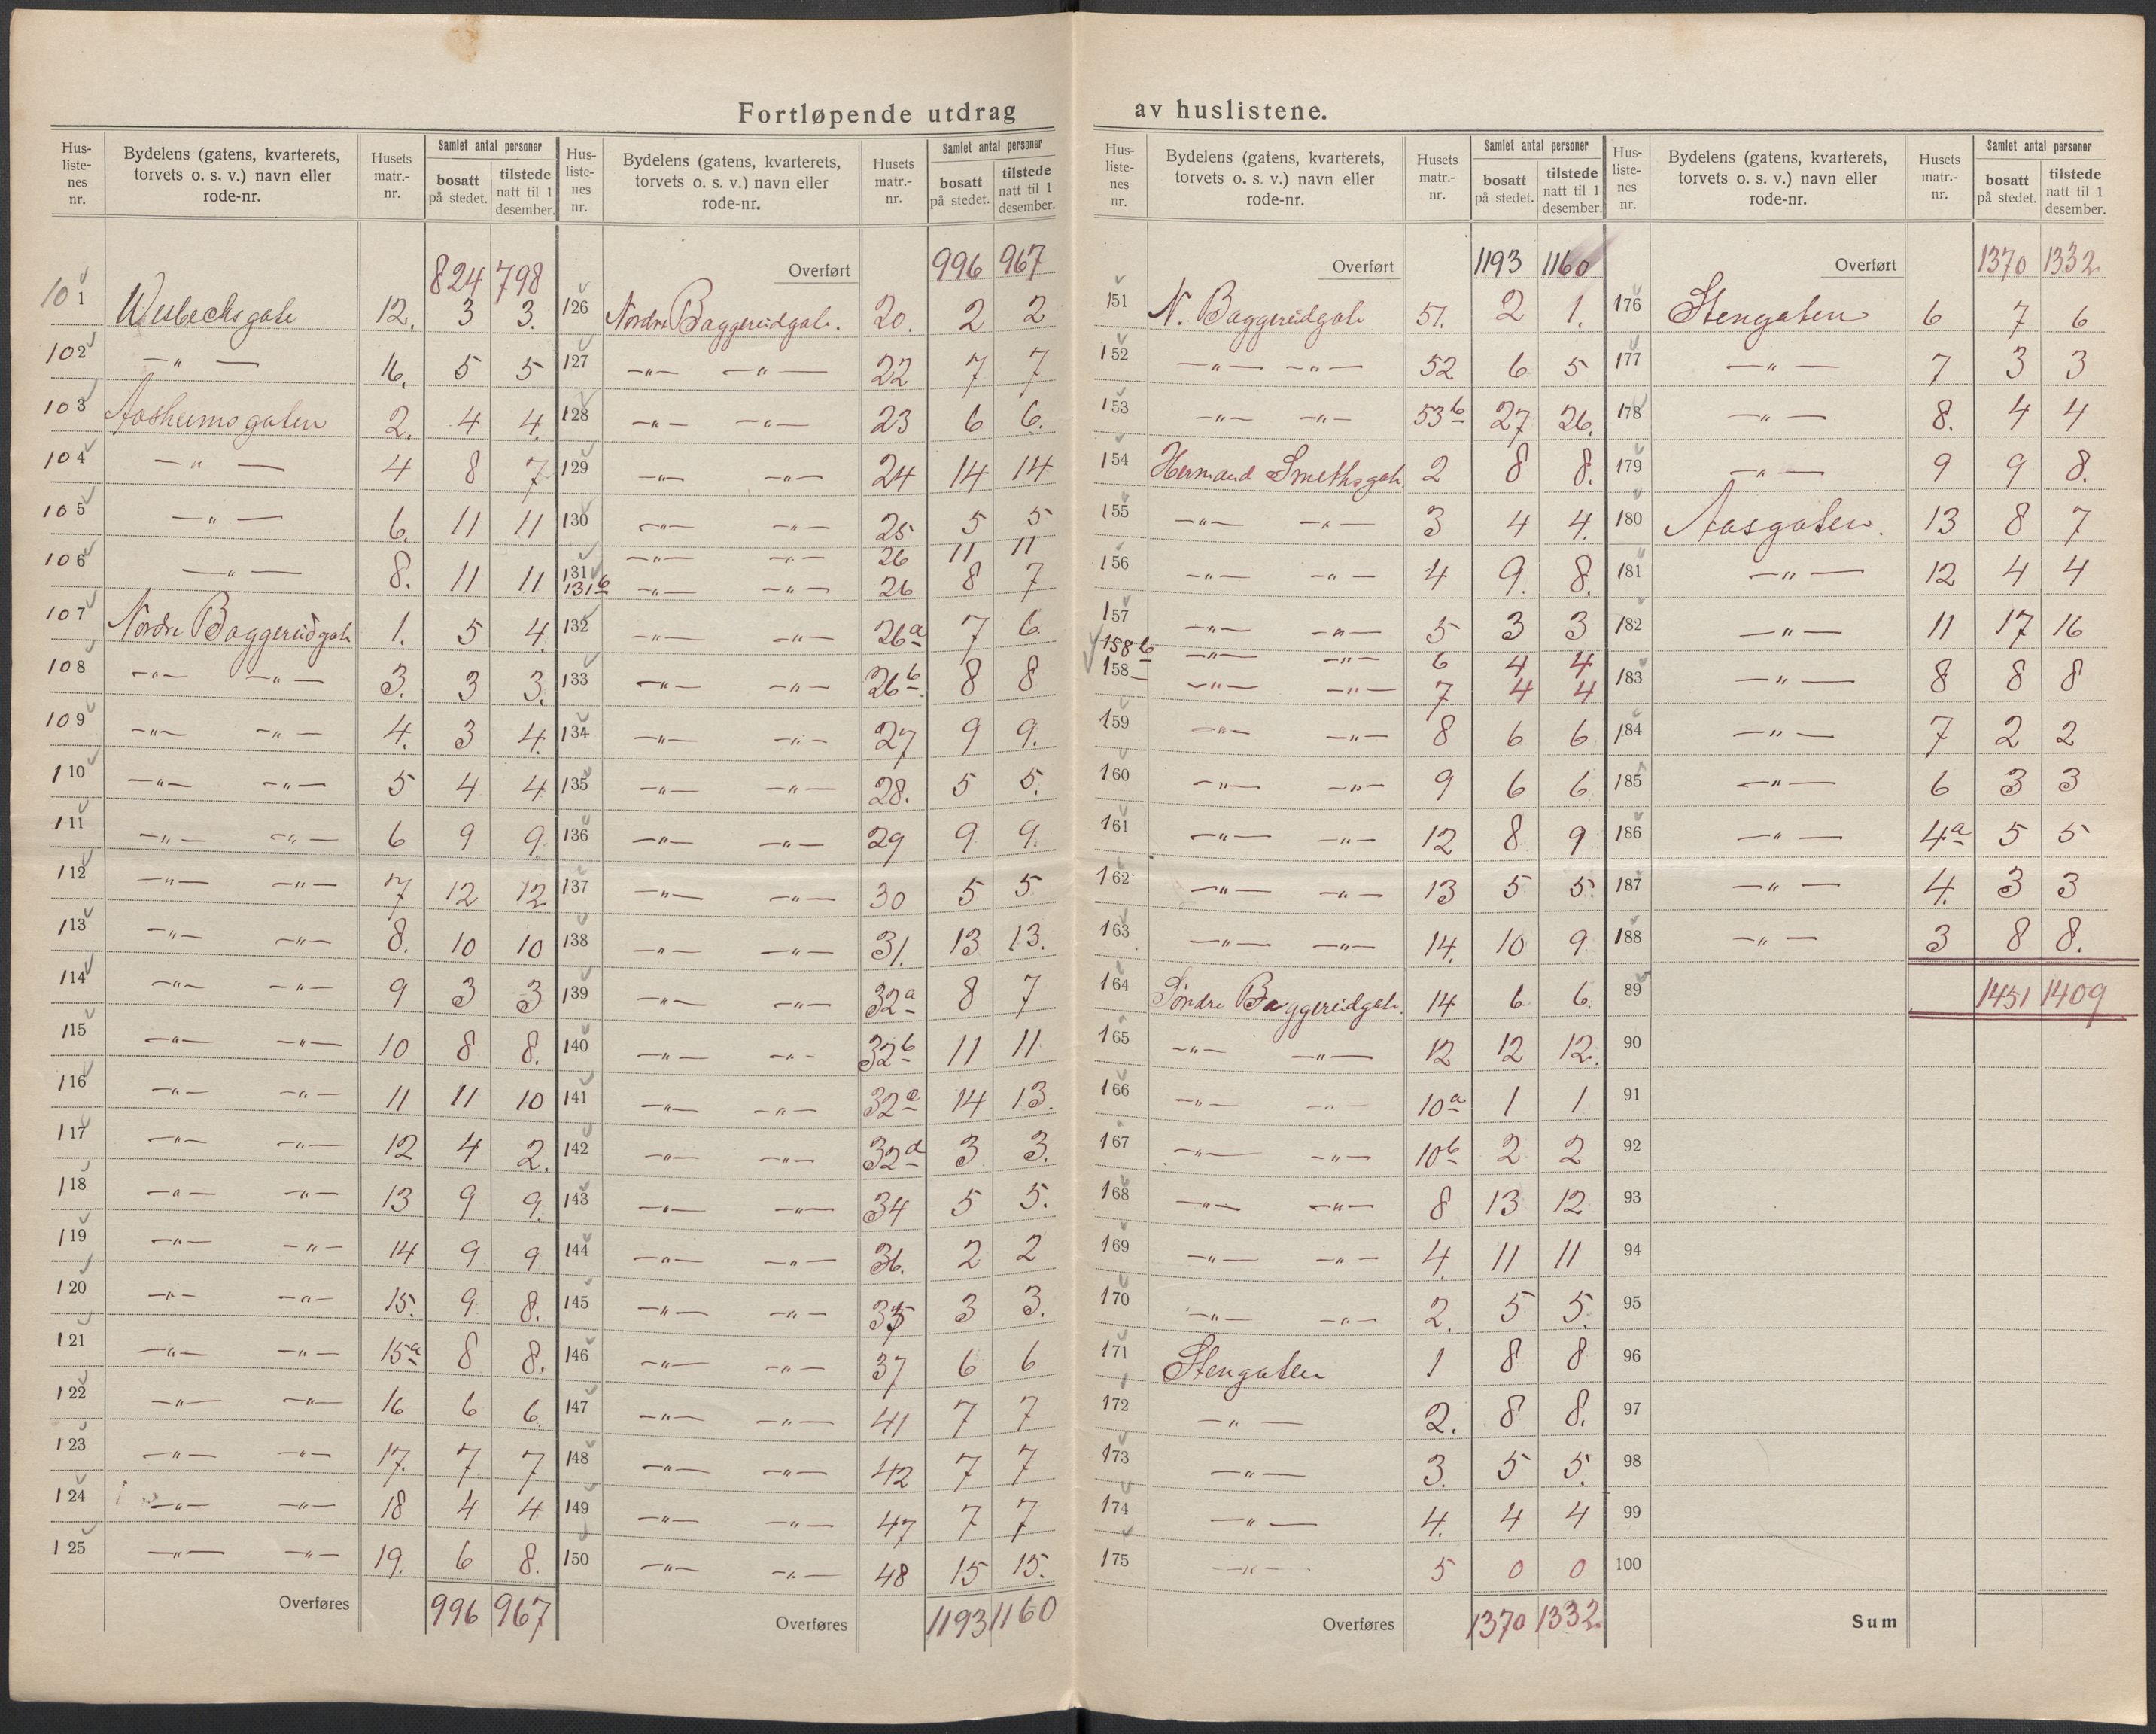 Fortløpende utdrag av huslistene.
Hus-liste-nes nr. | Bydelens (gatens, kvarterets, torvets o. s. v.) navn eller rode-nr. | Husets matr.-nr. | Samlet antal personer bosatt på stedet. | tilstede natt til 1 desember.
824 798
101 Wesbechsgate 12. 3 3.
102 —"— 16. 5 5
103 Aasheimsgaten 2. 4 4.
104 —"— 4 8 7
105 —"— 6. 11 11
106 —"— 8. 11 11
107 Nordre Baggerudgate 1. 5 4.
108 —"— —"— 3. 3 3.
109 —"— —"— 4. 3 4.
110 —"— —"— 5 4 4
111 —"— —"— 6 9 9.
112 —"— —"— 7 12 12
113 —"— —"— 8. 10 10
114 —"— —"— 9 3 3
115 —"— —"— 10 8 8.
116 —"— —"— 11 11 10
117 —"— —"— 12 4 2.
118 —"— —"— 13 9 9.
119 —"— —"— 14 9 9
120 —"— —"— 15. 9 8.
121 —"— —"— 15a 8 8.
122 —"— —"— 16 6 6.
123 —"— —"— 17. 7 7
124 —"— —"— 18 4 4
125 —"— —"— 19. 6 8.
Overføres 996 967
Hus-liste-nes nr. | Bydelens (gatens, kvarterets, torvets o. s. v.) navn eller rode-nr. | Husets matr.-nr. | Samlet antal personer bosatt på stedet. | tilstede natt til 1 desember.
Overført 996 967
126 Nordre Baggerudgate. 20. 2 2
127 —"— —"— 22 7 7
128 —"— —"— 23 6 6.
129 —"— —"— 24 14 14
130 —"— —"— 25 5 5
131 —"— —"— 26 11 11
131b —"— —"— 26 8 7
132 —"— —"— 26a 7 6
133 —"— —"— 26b. 8 8
134 —"— —"— 27 9 9.
135 —"— —"— 28. 5 5.
136 —"— —"— 29 9 9.
137 —"— —"— 30 5 5
138 —"— —"— 31. 13 13.
139 —"— —"— 32a 8 7
140 —"— —"— 32b 11 11
141 —"— —"— 32c 14 13.
142 —"— —"— 32d 3 3.
143 —"— —"— 34 5 5.
144 —"— —"— 36. 2 2
145 —"— —"— 35 3 3.
146 —"— —"— 37 6 6
147 —"— —"— 41 7 7
148 —"— —"— 42 7 7
149 —"— —"— 47 7 7
150 —"— —"— 48 15 15.
Overføres 1193 1160
Hus-liste-nes nr. | Bydelens (gatens, kvarterets, torvets o. s. v.) navn eller rode-nr. | Husets matr.-nr. | Samlet antal personer bosatt på stedet. | tilstede natt til 1 desember.
Overført 1193 1160
151 N. Baggerudgate 51. 2 1.
152 —"— —"— 52 6 5
153 —"— —"— 53b 27 26.
154 Hermand Smithsgate. 2 8 8.
155 —"— —"— 3 4 4.
156 —"— —"— 4 9. 8.
157 —"— —"— 5 3 3
158b —"— —"— 6 4 4
158 —"— —"— 7 4 4
159 —"— —"— 8 6 6
160 —"— —"— 9 6 6
161 —"— —"— 12 8 9
162 —"— —"— 13 5 5
163 —"— —"— 14. 10 9
164 Søndre Baggerudgate. 14 6 6.
165 —"— —"— 12 12 12.
166 —"— —"— 10a 1 1
167 —"— —"— 10b 2 2
168 —"— —"— 8 13 12
169 —"— —"— 4. 11 11
170 —"— —"— 2. 5 5.
171 Stengaten 1 8 8
172 —"— 2. 8 8.
173 —"— 3. 5 5.
174 —"— 4. 4 4
175 —"— 5 0 0
Overføres 1370 1332
Hus-liste-nes nr. | Bydelens (gatens, kvarterets, torvets o. s. v.) navn eller rode-nr. | Husets matr.-nr. | Samlet antal personer bosatt på stedet. | tilstede natt til 1 desember.
Overført 1370 1332
176 Stengaten 6 7 6
177 —"— 7 3 3
178 —"— 8. 4 4
179 —"— 9 9 8.
180 Aasgaten. 13 8 7
181 —"— 12 4 4
182 —"— 11 17 16
183 —"— 8 8 8
184 —"— 7 2 2
185 —"— 6 3 3
186 —"— 4a 5 5
187 —"— 4. 3 3
188 —"— 3 8 8.
89 1451 1409
90
91
92
93
94
95
96
97
98
99
100
Sum